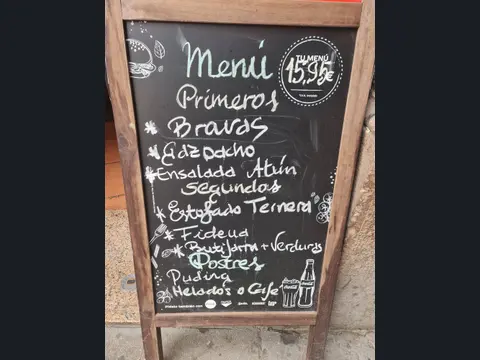 Menú
TU MENÚ
15,95€
Primeros
* Bravas
* Gazpacho
* Ensalada Atún
segundos
* Estofado Ternera
* Fideua
* Butifarra + Verduras
Postres
Puding
* Helados o Cafe
Coca-Cola